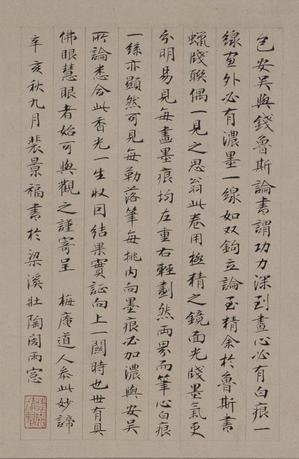 包安吳與錢魯斯論書謂功力深到畫心必有白痕一
線畫外必有濃墨一線如雙鉤立論至精余於魯斯書
蠟牋聯偶一見之思翁此卷用極精之鏡面光牋墨氣更
分明易見每畫墨痕均左重右輕劃然兩界而筆心白痕
一絲亦顯然可見每勒落筆每挑內向墨痕必加濃與安吳
所論悉合此香光一生收因結果實証向上一關時也世有具
佛眼慧眼者始可與觀之謹寄呈 梅庵道人參此妙諦
辛亥秋九月裴景福書於梁溪壯陶閣雨窓